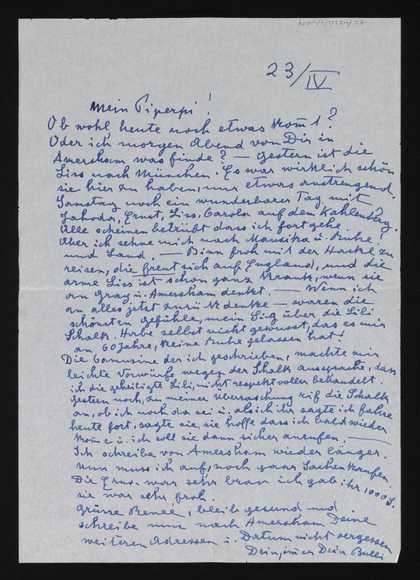 23/IV
Mein Piperpi!
Ob wohl heute noch etwas kom̄t?
Oder ich morgen Abend von Dir in
Amersham was finde? — Gestern ist die
Liss nach München. Es war wirklich schön
sie hier zu haben, nur etwas anstrengend.
Samstag noch ein wunderbarer Tag mit
Jahoda, Ernst, Liss, Carola auf den Kahlenberg.
Alle scheinen betrübt dass ich fortgehe.
Aber ich sehne mich nach u. Ruhe!
und Land. — Bin froh mit der zu
reisen, die freut sich auf England, und die
arme Lies ist schon ganz krank, wenn sie
an Gray u. Amersham denkt. — Wenn ich
an alles jetzt zurückdenke — waren die
schönsten Gefühle, mein Sieg über die Lili
Schalk. Habe selbst nicht gewusst, das es mir
an 60 Jahre, keine Ruhe gelassen hat!
Die der ich geschrieben, machte mir
leichte Vorwürfe wegen der Schalk aussprache, dass
ich die geheiligte Lili, nicht respektvoller behandelt.
Gestern noch, zu meiner Überraschung rief die Schalk
an, ob ich noch da sei u. als ich ihr sagte ich fahre
heute fort, sagte sie, sie hoffe dass ich bald wieder
kom̄e u. ich soll sie dann sicher anrufen. —
Ich schreibe von Amersham wieder länger.
Nun muss ich auf, noch paar Sachen kaufen.
Die war sehr brav ich gab ihr 1000 S.
sie war sehr froh.
Grüsse Reneé, bleib gesund und
schreibe nun nach Amersham Deine
weiteren Adressen u. Datum nicht vergessen
Dein Bulli